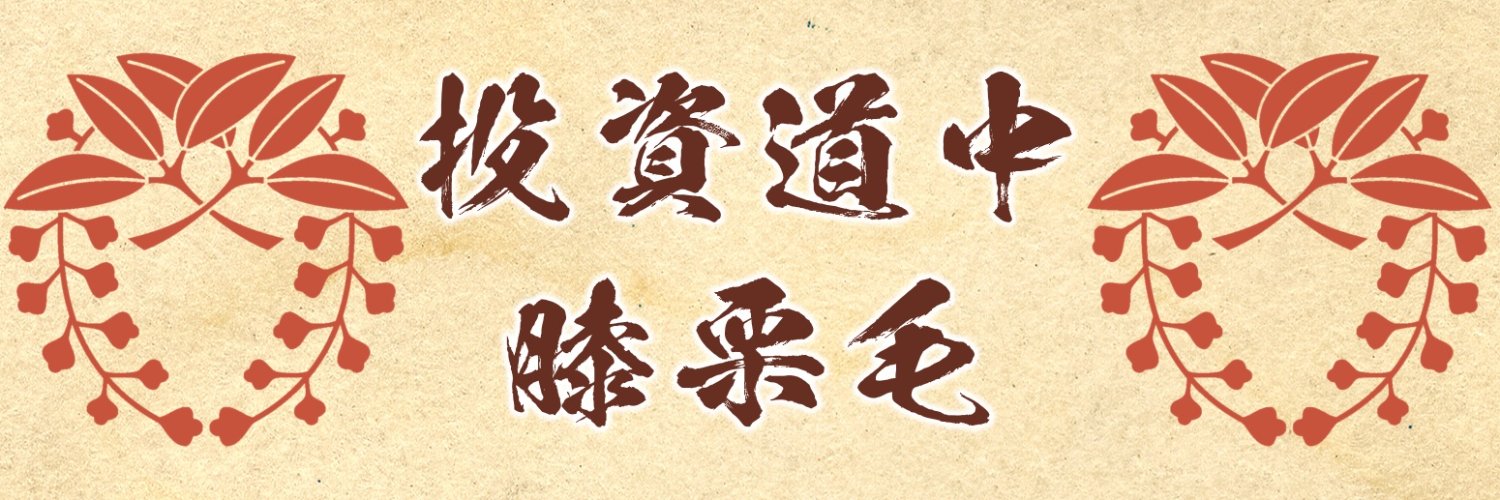 投資道中
膝栗毛